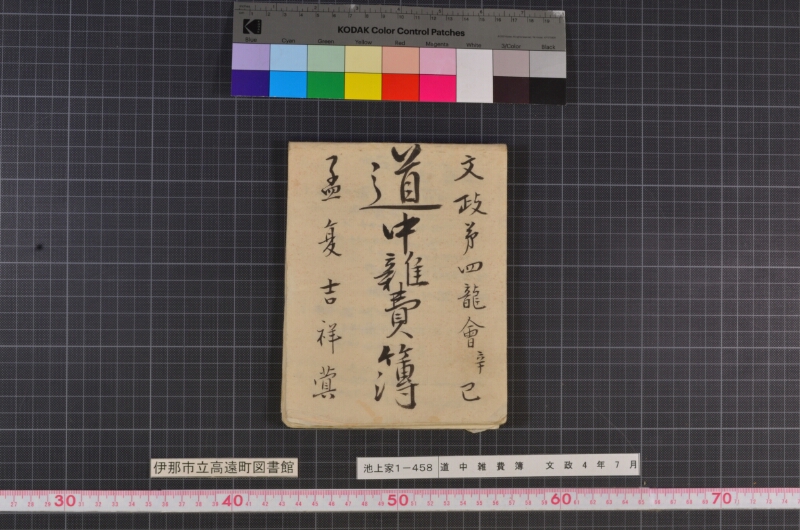 KODAK Color Control Patches
Blue Cyan Green Yellow Red Magenta White 3/Color Black
文政第四龍會辛巳
道中雜費簿
孟夏吉祥蓂
伊那市立高遠町図書館
池上家1-458 道中雑費簿 文政4年7月
30 40 50 60 70